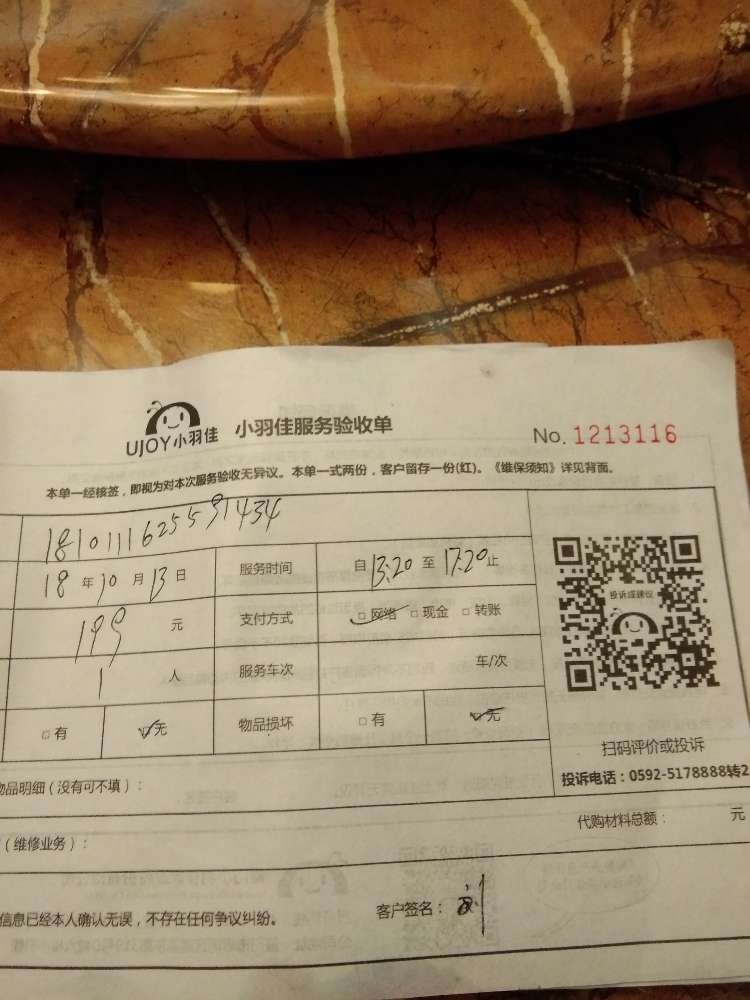 UJOY小羽佳 小羽佳服务验收单 No. 1213116
本单一经核签，即视为对本次服务验收无异议。本单一式两份，客户留存一份(红)。《维保须知》详见背面。
1810111625591434
18 年 10 月 13 日 服务时间 自 13:20 至 17:20 止
199 元 支付方式 网络 现金 转账
1 人 服务车次 车/次
有 无 物品损坏 有 无
投诉或建议
扫码评价或投诉
投诉电话：0592-5178888转2
物品明细（没有可不填）：
代购材料总额： 元
（维修业务）：
信息已经本人确认无误，不存在任何争议纠纷。 客户签名：